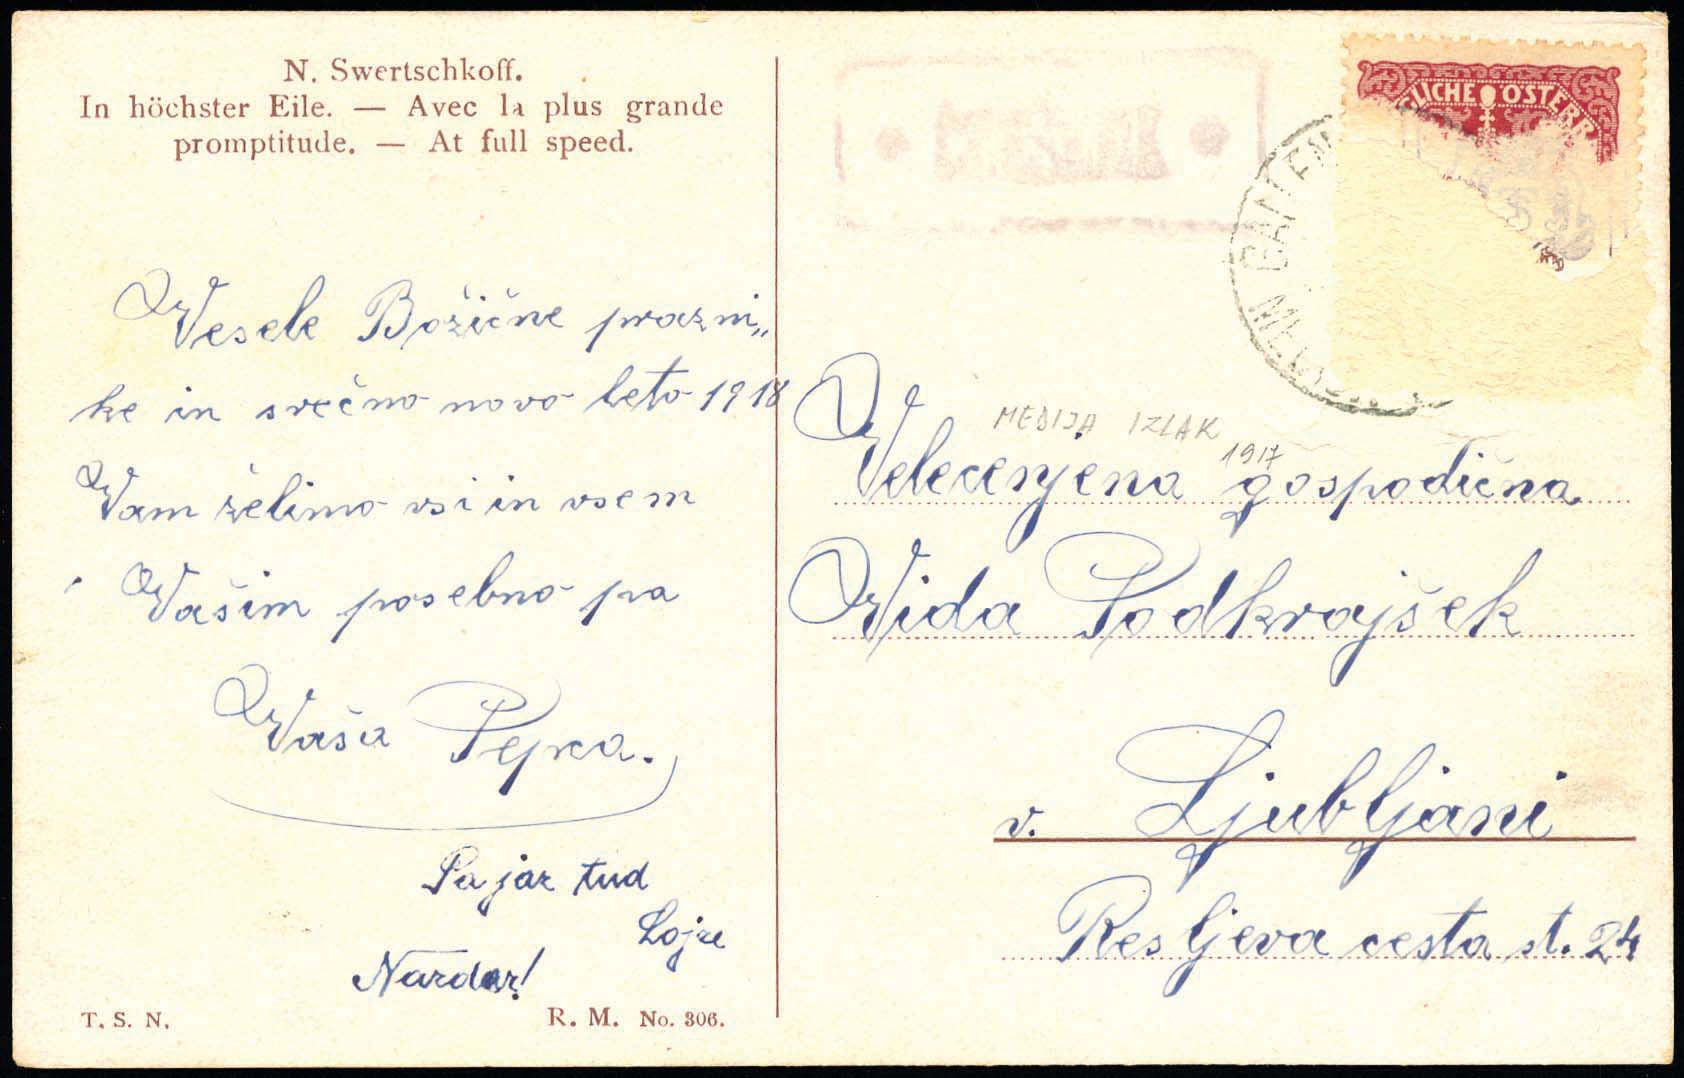 N. Swertschkoff.
In höchster Eile. — Avec la plus grande
promptitude. — At full speed.
Vesele Božične prazni„
ke in srečno novo leto 1918
Vam želimo vsi in vsem
Vašim posebno pa
Vaša Pepca.
Pa jaz tud
Lojze
LICHE ÖSTERR
MEDIJA IZLAK
1917
Velecenjena gospodična
Vida Podkrajšek
v. Ljubljani
Resljeva cesta št. 24
T. S. N.
R. M. No. 306.